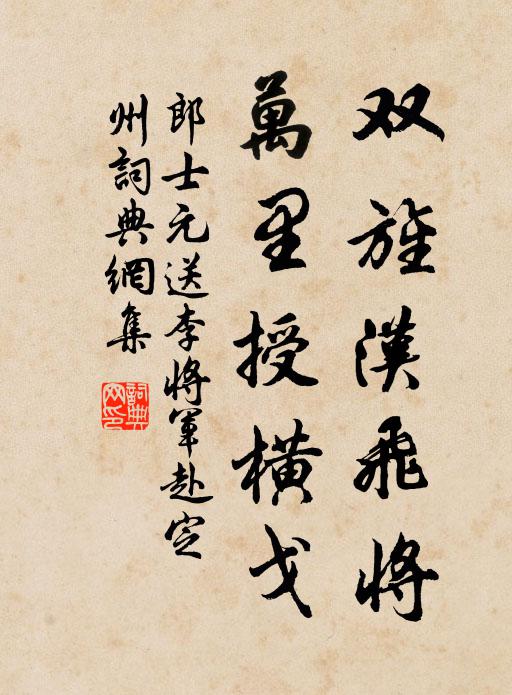 双旌漢飛將
萬里授横戈
郎士元送李將軍赴定
州詞典網集
詞典網印